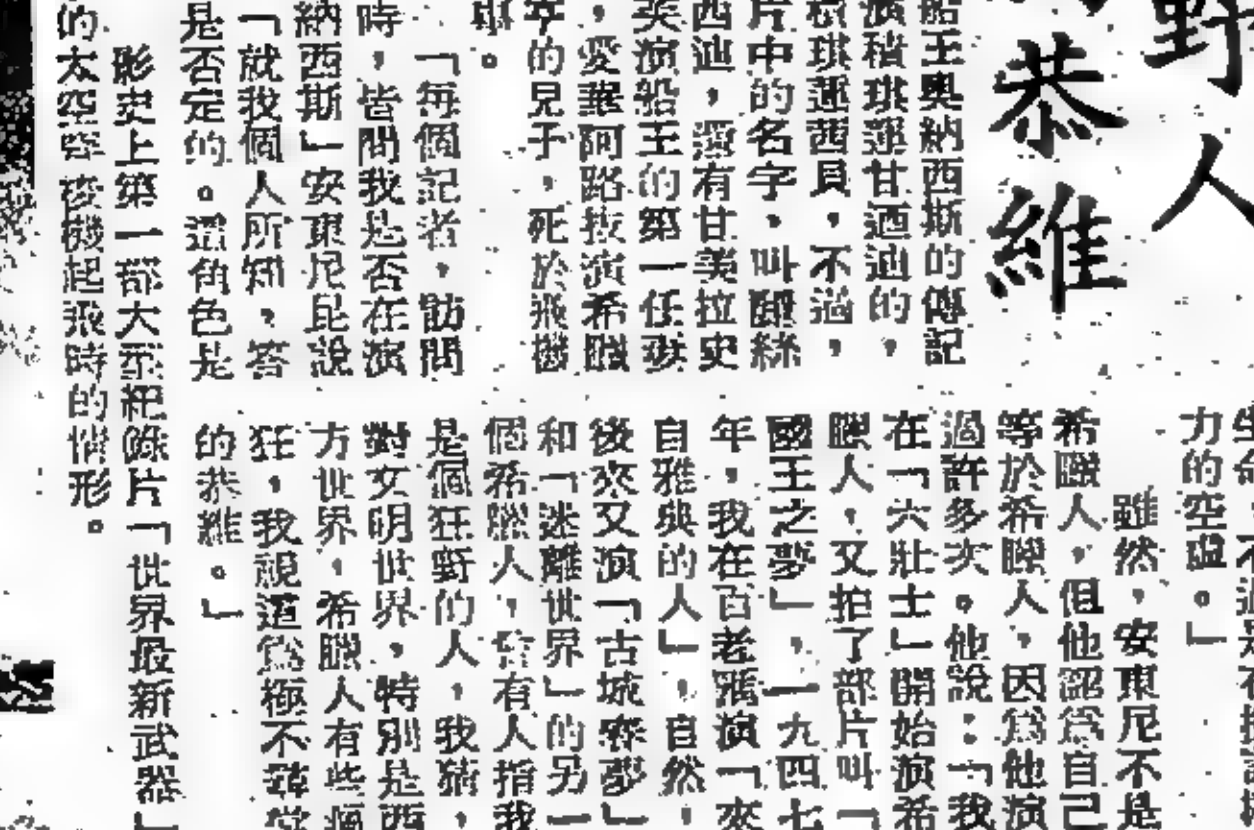 野人
恭維
船王奧納西斯的傳記
演積琪蓮甘迺迪的,
積琪蓮茜貝,不過,
片中的名字,叫麗絲
西迪,還有甘美拉史
美演船王的第一任妻
,愛華阿路拔演希臘
的兒子,死於飛機
。
「每個記者,訪問
時,皆問我是否在演
納西斯」安東尼昆說
「就我個人所知,答
是否定的。這角色是
影史上第一部大型紀錄片「世界最新武器」
的太空穿梭機起飛時的情形。
力的空虛。」
雖然,安東尼不是
希臘人,但他認為自己
等於希臘人,因為他演
過許多次。他說:「我
在「六壯士」開始演希
臘人,又拍了部片叫「
國王之夢」,一九四七
年,我在百老滙演「來
自雅典的人」,自然,
後來又演「古城春夢」
和「迷離世界」的另一
個希臘人,曾有人指我
是個狂野的人,我猜,
對文明世界,特別是西
方世界,希臘人有些瘋
狂,我視這為極不尋常
的恭維。」